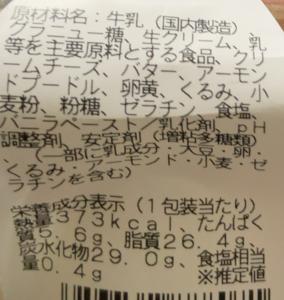 原材料名：牛乳（国内製造）、
グラニュー糖、生クリーム、乳
等を主要原料とする食品、クリ
ームチーズ、バター、アーモン
ドプードル、卵黄、くるみ、小
麦粉、粉糖、ゼラチン、食塩、
バニラペースト／乳化剤、pH
調整剤、安定剤（増粘多糖類）
、（一部に乳成分・大豆・卵・
くるみ・アーモンド・小麦・ゼ
ラチンを含む）
栄養成分表示（１包装当たり）
熱量373kcal、たんぱく
質5.6g、脂質26.4g、
炭水化物29.0g、食塩相当
量0.4g ※推定値